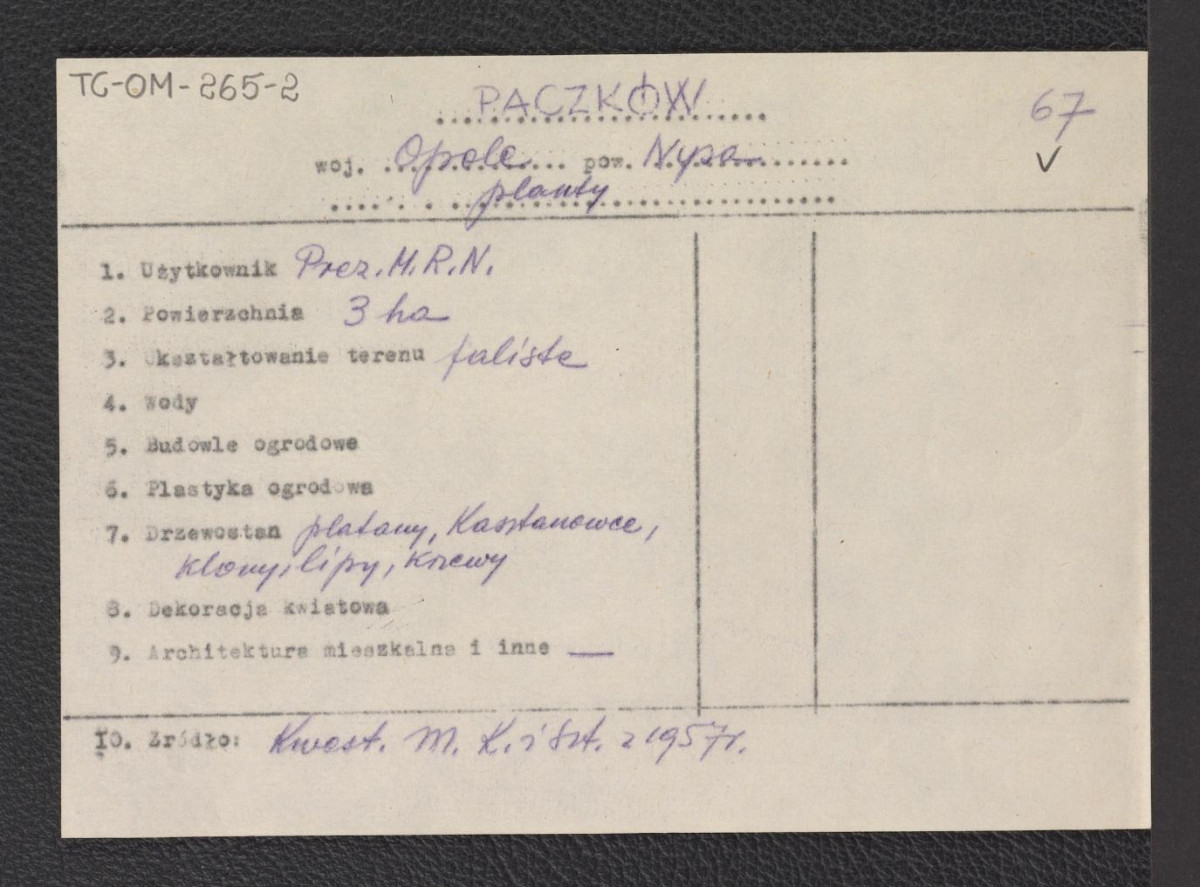 TG-OM-265-2
PACZKÓW
67
woj. Opole pow. Nysa
planty
1. Użytkownik Prez. M.R.N.
2. Powierzchnia 3 ha
3. Ukształtowanie terenu faliste
4. Wody
5. Budowle ogrodowe
6. Plastyka ogrodowa
7. Drzewostan platany, Kasztanowce,
klony, lipy, krzewy
8. Dekoracja kwiatowa
9. Architektura mieszkalna i inne —
10. Źródło: Kwest. M. K. i Szt. z 1957r.